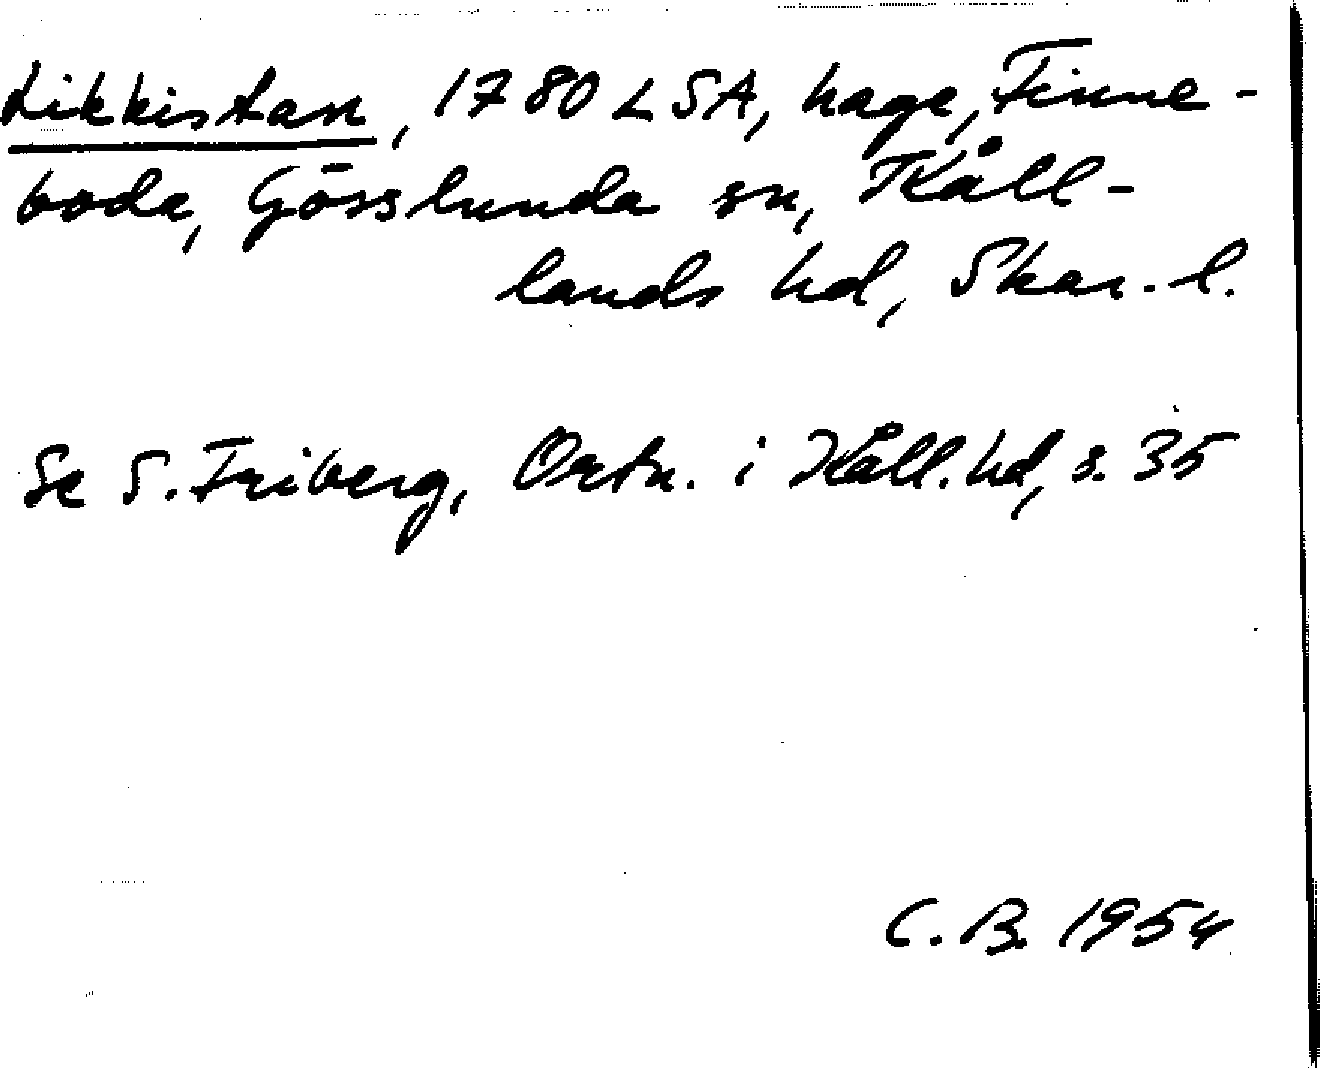 Likkistan, 1780 LSA, hage, Finne-
boda, Gösslunda sn, Kåll-
lands hd, Skar. l.
Se S. Friberg, Ortn. i Kåll. hd, s. 35
C. B. 1954